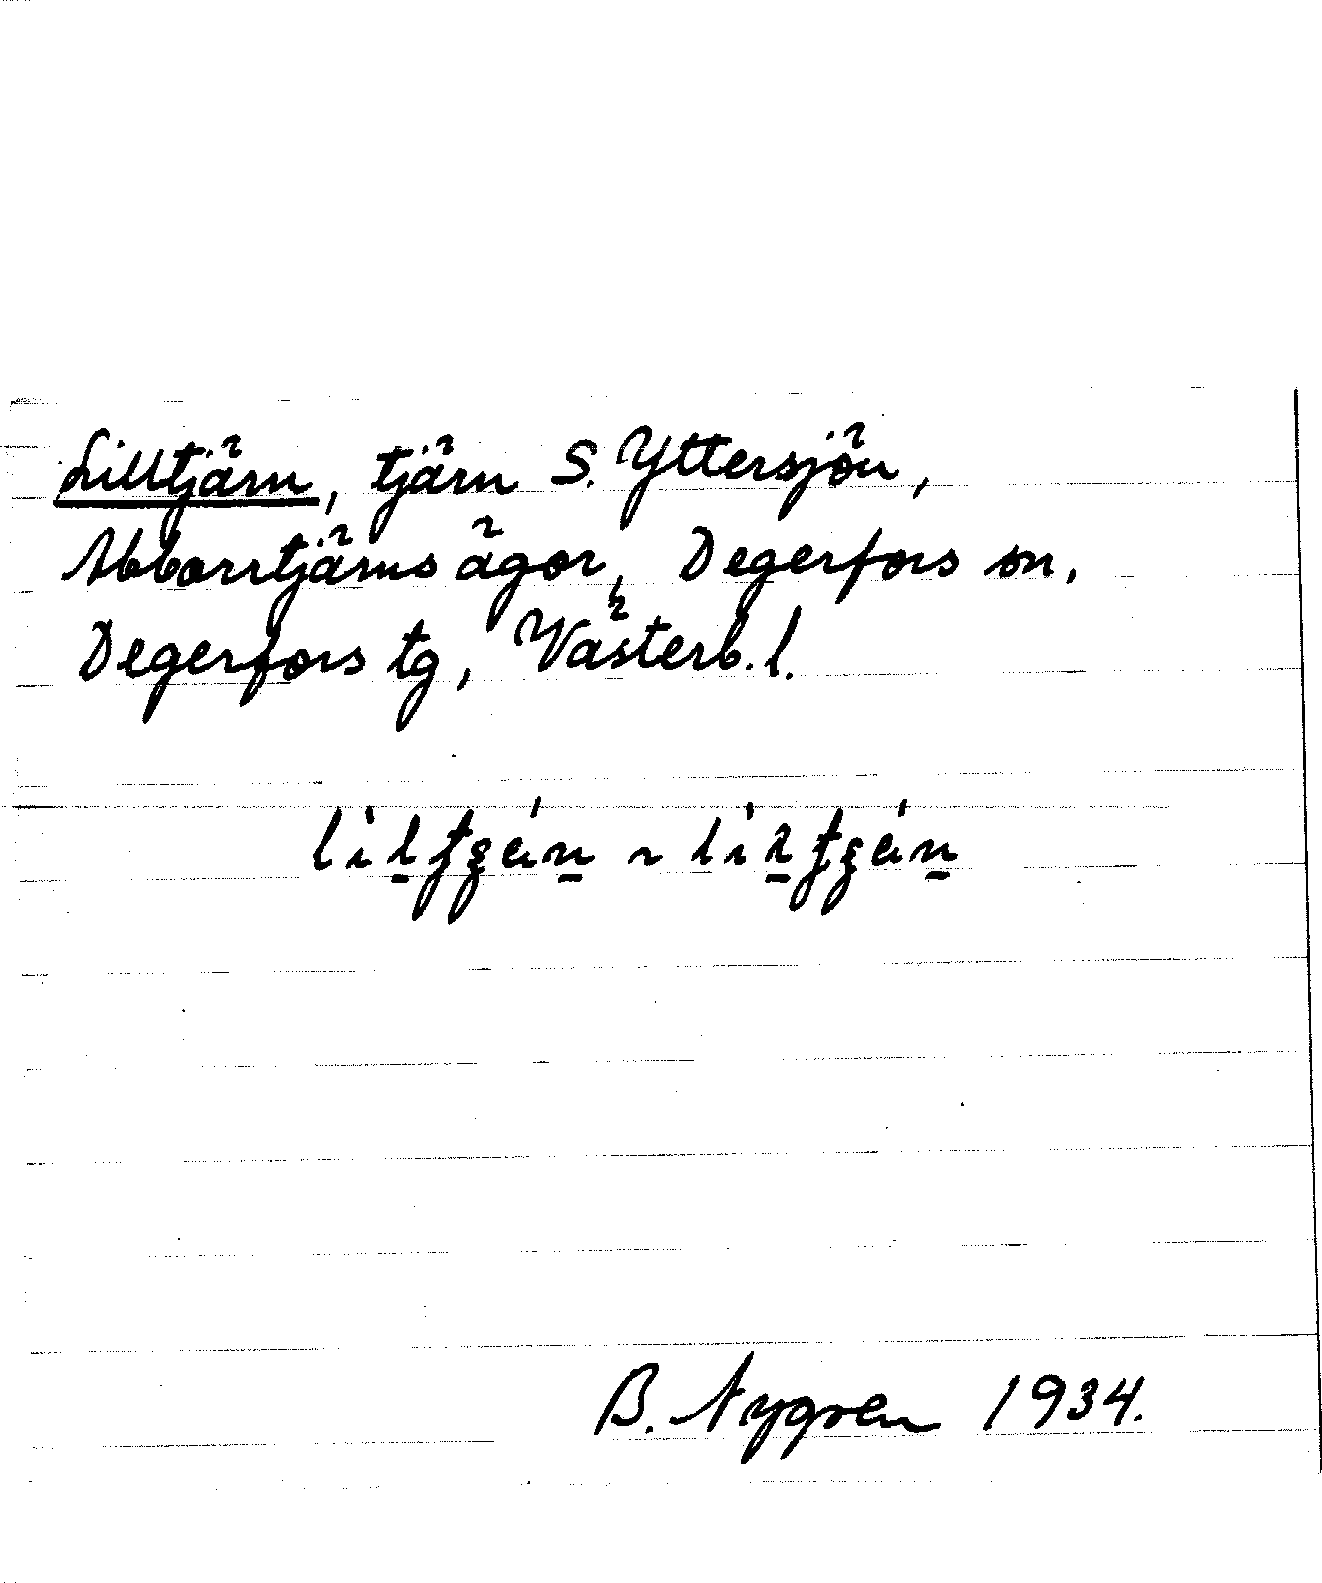 Lilltjärn, tjärn S. Yttersjön,
Abborrtjärns ägor, Degerfors sn,
Degerfors tg, Västerb. l.
B. Nygren 1934.